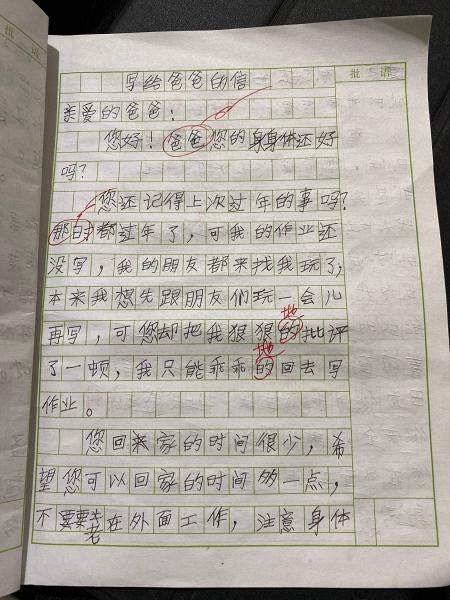 批语
写给爸爸的信
亲爱的爸爸：
您好！爸爸您的身身体还好
吗？
您还记得上次过年的事吗？
那时都过年了，可我的作业还
没写，我的朋友都来找我玩了，
本来我想先跟朋友们玩一会儿
地
再写，可您却把我狠狠的批评
地
了一顿，我只能乖乖的回去写
作业。
您回来家的时间很少，希
望您可以回家的时间多一点，
不要要老在外面工作，注意身体